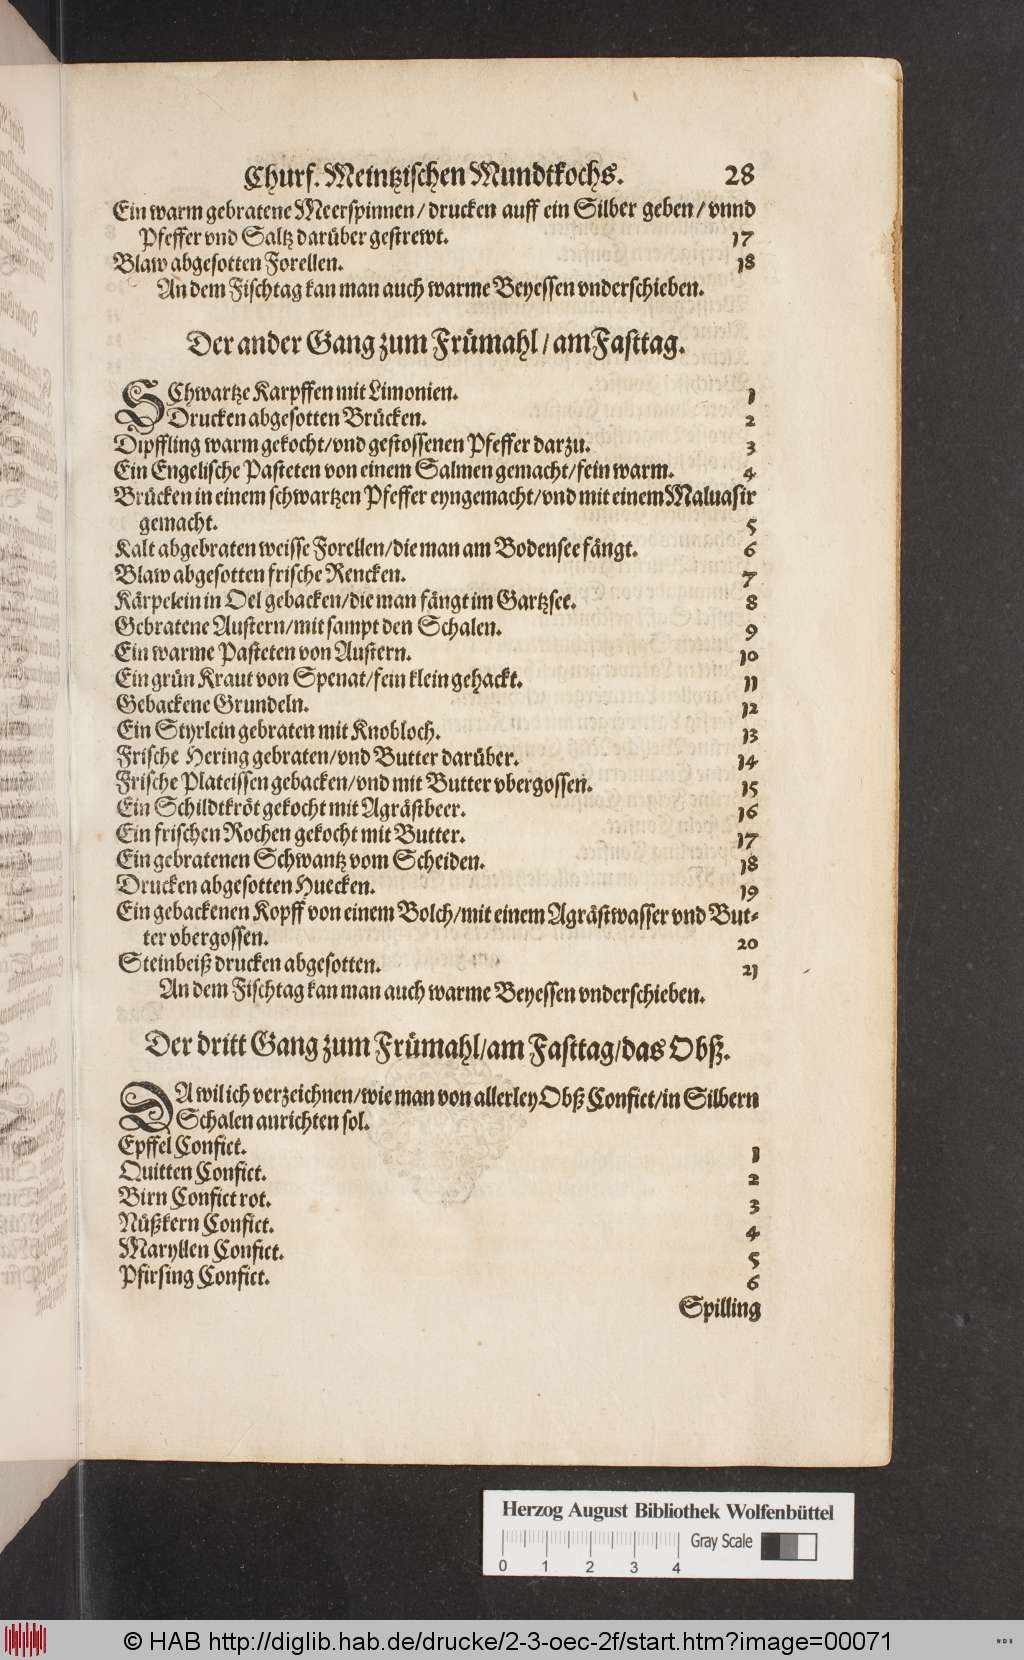 Churf. Meintzischen Mundtkochs. 28
Ein warm gebratene Meerspinnen / drucken auff ein Silber geben / vnnd
Pfeffer vnd Saltz darüber gestrewt. 17
Blaw abgesotten Forellen. 18
An dem Fischtag kan man auch warme Beyessen vnderschieben.
Der ander Gang zum Frümahl / am Fasttag.
SChwartze Karpffen mit Limonien. 1
Drucken abgesotten Brücken. 2
Dipffling warm gekocht/vnd gestossenen Pfeffer darzu. 3
Ein Engelische Pasteten von einem Salmen gemacht/fein warm. 4
Brücken in einem schwartzen Pfeffer eyngemacht/vnd mit einem Maluasir
gemacht. 5
Kalt abgebraten weisse Forellen/die man am Bodensee fängt. 6
Blaw abgesotten frische Rencken. 7
Kärpelein in Oel gebacken/die man fängt im Gartzsee. 8
Gebratene Austern/mit sampt den Schalen. 9
Ein warme Pasteten von Austern. 10
Ein grün Kraut von Spenat/fein klein gehackt. 11
Gebackene Grundeln. 12
Ein Styrlein gebraten mit Knobloch. 13
Frische Hering gebraten/vnd Butter darüber. 14
Frische Plateissen gebacken/vnd mit Butter vbergossen. 15
Ein Schildtkröt gekocht mit Agrästbeer. 16
Ein frischen Rochen gekocht mit Butter. 17
Ein gebratenen Schwantz vom Scheiden. 18
Drucken abgesotten Huecken. 19
Ein gebackenen Kopff von einem Bolch/mit einem Agrästwasser vnd But-
ter vbergossen. 20
Steinbeiß drucken abgesotten. 21
An dem Fischtag kan man auch warme Beyessen vnderschieben.
Der dritt Gang zum Frümahl/am Fasttag/das Obß.
DA wil ich verzeichnen/wie man von allerley Obß Confict/in Silbern
Schalen anrichten sol.
Epffel Confict. 1
Quitten Confict. 2
Birn Confict rot. 3
Nüßkern Confict. 4
Maryllen Confict. 5
Pfirsing Confict. 6
Spilling
Herzog August Bibliothek Wolfenbüttel
Gray Scale
0 1 2 3 4
© HAB http://diglib.hab.de/drucke/2-3-oec-2f/start.htm?image=00071